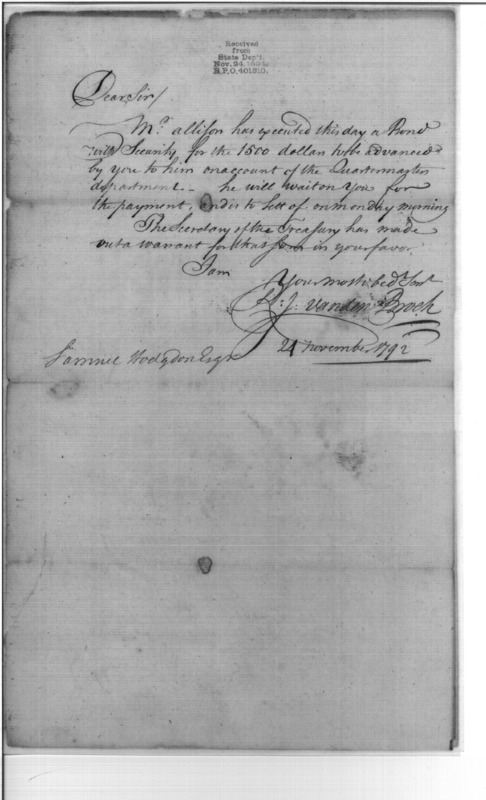 Received
from
State Dep't.
Nov. 24,
R.P.O. 401310.
Dear Sir/
Mr. allison has executed this day a Bond
with Security for the 1500 dollars to be advanced
by you to him on account of the Quartermaster
department — he will wait on you for
the payment, and is to set of on monday morning
The Secretary of the Treasury has made
out a warrant for that sum in your favor
I am
Your most obedt Sert
R: J: Vanden Broek
24 November 1792
Samuel Hodgdon Esqr